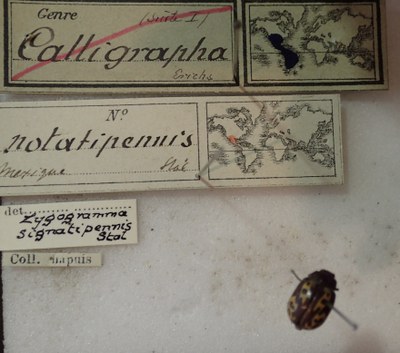 Genre (suite I)
Calligrapha
Erichs
Nº
notatipennis
Mexique Stål
det.
Zygogramma
signatipennis
Stal
Coll.